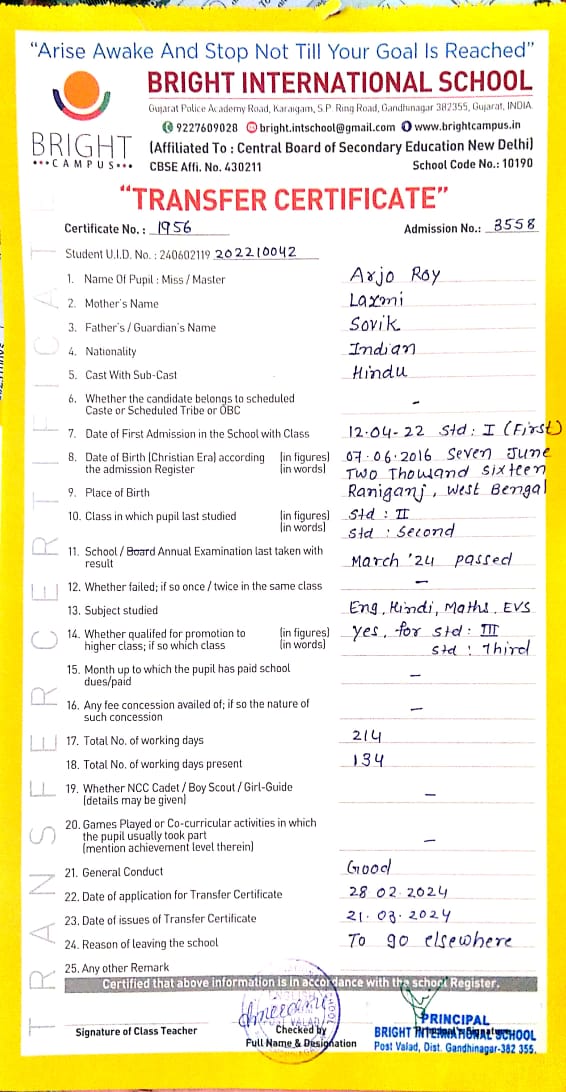 "Arise Awake And Stop Not Till Your Goal Is Reached"
BRIGHT INTERNATIONAL SCHOOL
Gujarat Police Academy Road, Karaigam, S.P. Ring Road, Gandhinagar 382355, Gujarat, INDIA.
9227609028 bright.intschool@gmail.com www.brightcampus.in
BRIGHT
CAMPUS
(Affiliated To : Central Board of Secondary Education New Delhi)
CBSE Affi. No. 430211 School Code No.: 10190
"TRANSFER CERTIFICATE"
Certificate No. : 1956 Admission No.: 3558
Student U.I.D. No. : 240602119 202210042
1. Name Of Pupil : Miss / Master Arjo Roy
2. Mother's Name Laxmi
3. Father's / Guardian's Name Sovik
4. Nationality Indian
5. Cast With Sub-Cast Hindu
6. Whether the candidate belongs to scheduled
Caste or Scheduled Tribe or OBC -
7. Date of First Admission in the School with Class 12-04-22 Std : I (First)
8. Date of Birth (Christian Era) according (in figures) 07.06.2016 Seven June
the admission Register (in words) Two Thouand Sixteen
9. Place of Birth Raniganj, West Bengal
10. Class in which pupil last studied (in figures) Std : II
(in words) Std : Second
11. School / Board Annual Examination last taken with
result March '24 passed
12. Whether failed; if so once / twice in the same class —
13. Subject studied Eng, Hindi, Maths, EVS
14. Whether qualifed for promotion to (in figures) Yes, for Std : III
higher class; if so which class (in words) Std : Third
15. Month up to which the pupil has paid school
dues/paid —
16. Any fee concession availed of; if so the nature of
such concession —
17. Total No. of working days 214
18. Total No. of working days present 134
19. Whether NCC Cadet / Boy Scout / Girl-Guide
(details may be given) —
20. Games Played or Co-curricular activities in which
the pupil usually took part
(mention achievement level therein) —
21. General Conduct Good
22. Date of application for Transfer Certificate 28 02.2024
23. Date of issues of Transfer Certificate 21.03.2024
24. Reason of leaving the school To go elsewhere
25. Any other Remark
Certified that above information is in accordance with the school Register.
Signature of Class Teacher
Checked by
Full Name & Designation
PRINCIPAL
BRIGHT INTERNATIONAL SCHOOL
Post Valad, Dist. Gandhinagar-382 355.
TRANSFER CERTIFICATE